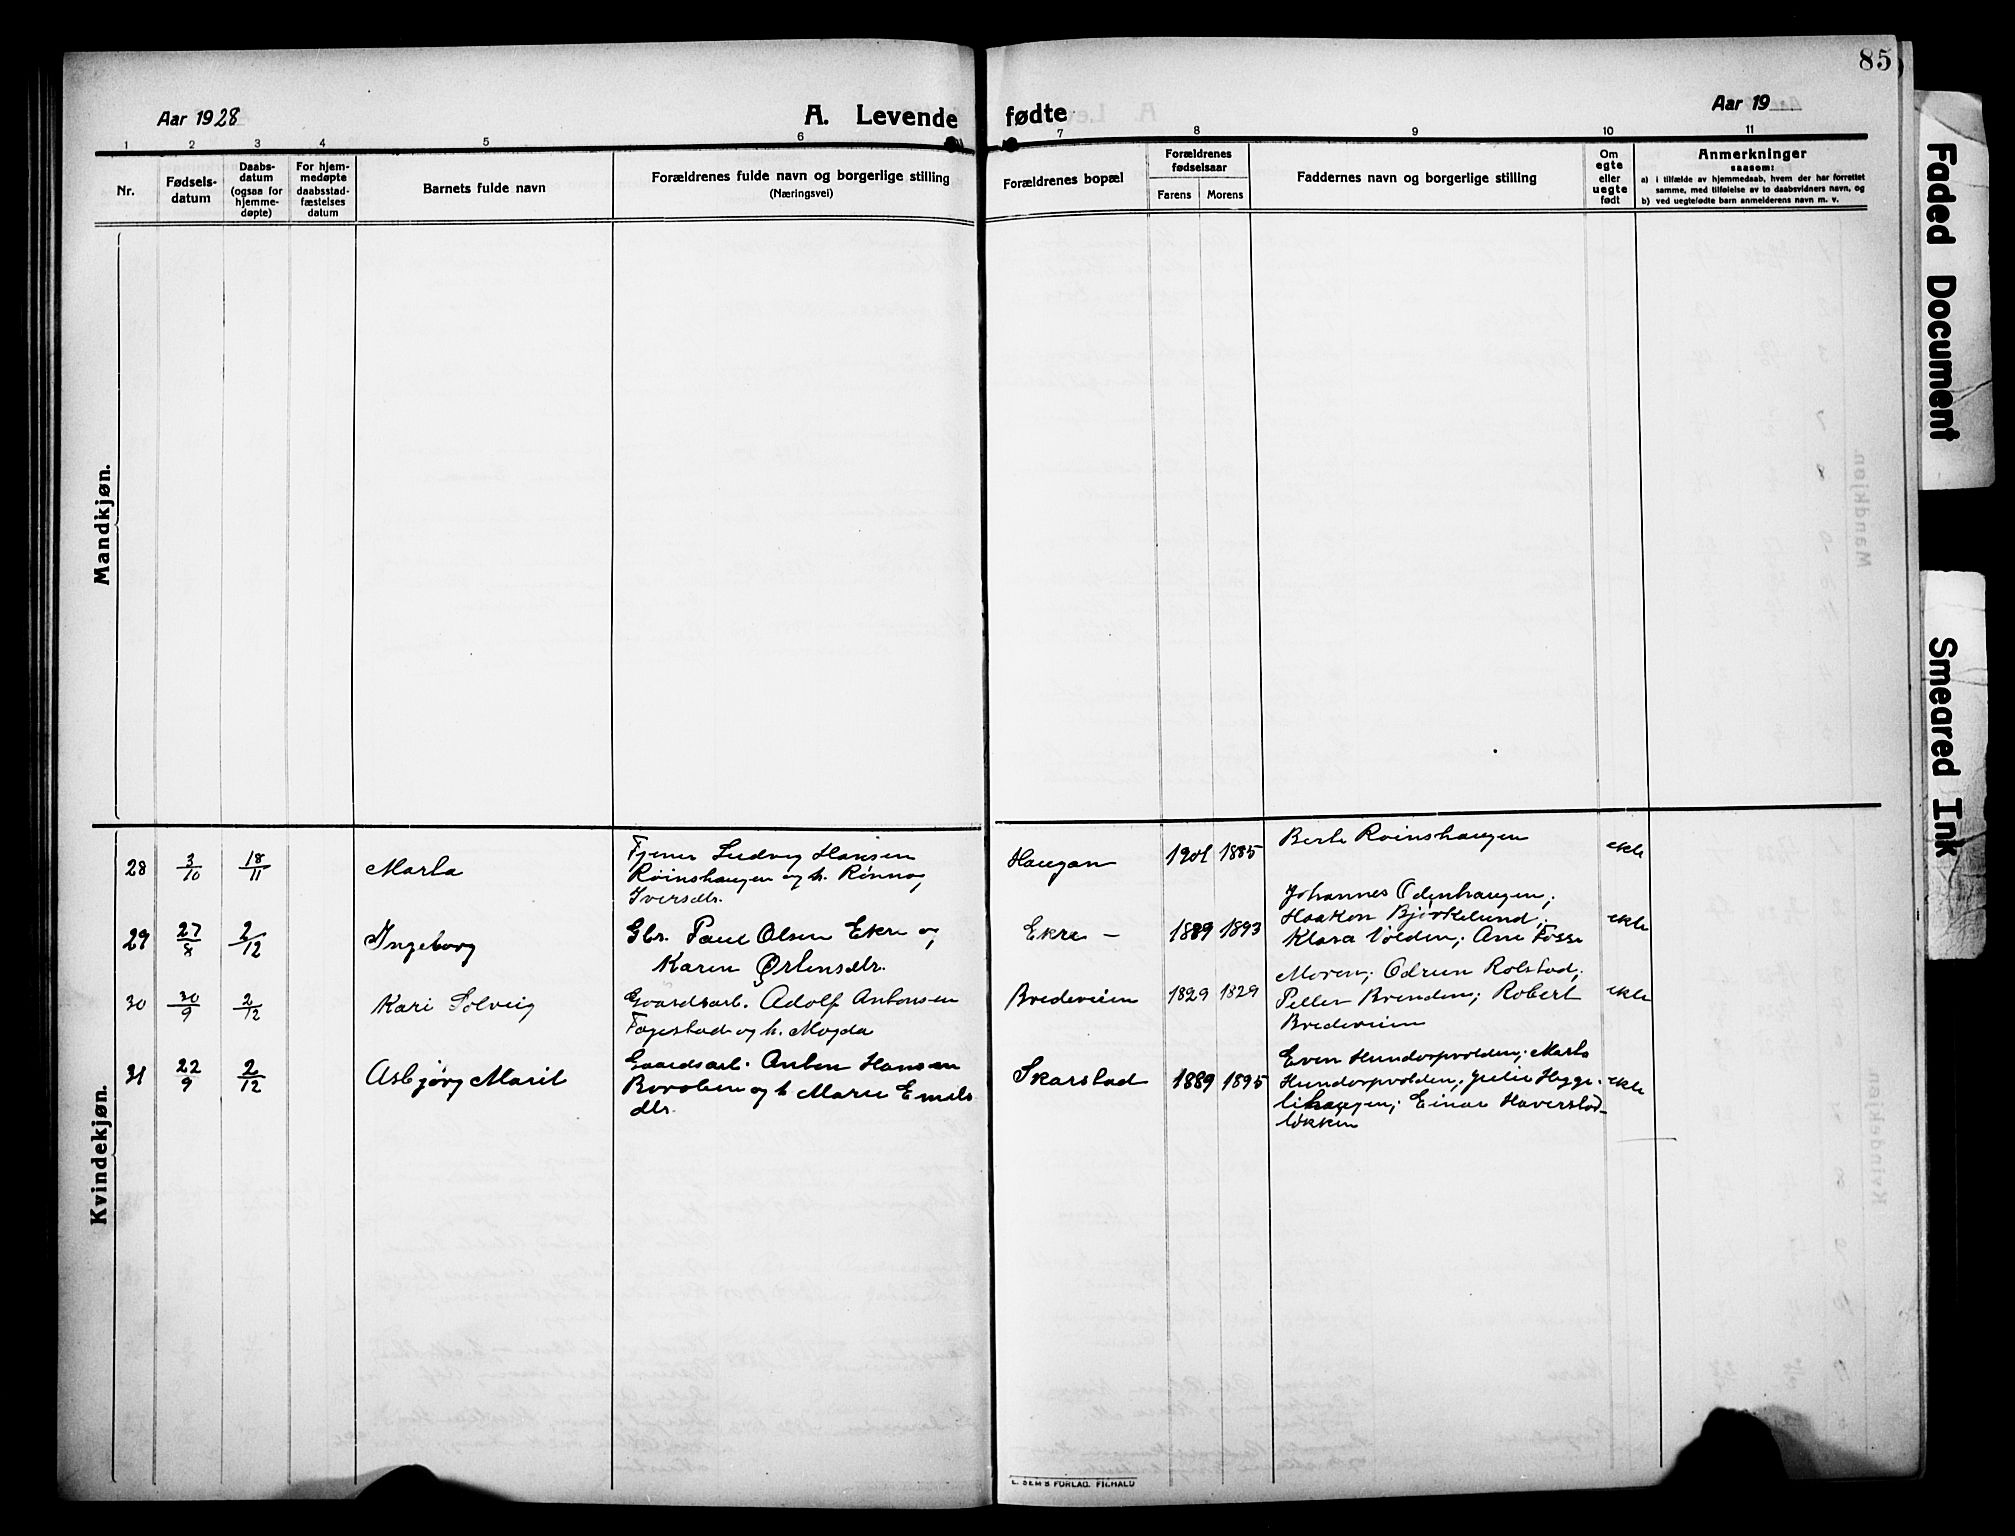 85
Aar 1928
A. Levende fødte
Aar 19
1 2 3 4 5 6 7 8 9 10 11
Nr.
Fødsels-
datum
Daabs-
datum
(ogsaa for
hjemme-
døpte)
For hjem-
medøpte
daabsstad-
fæstelses
datum
Barnets fulde navn
Forældrenes fulde navn og borgerlige stilling
(Næringsvei)
Forældrenes bopæl
Forældrenes
fødselsaar
Farens Morens
Faddernes navn og borgerlige stilling
Om
egte
eller
uegte
født
Anmerkninger
saasom:
a) i tilfælde av hjemmedaab, hvem der har forrettet
samme, med tilføielse av to daabsvidners navn, og
b) ved uegtefødte barn anmelderens navn m. v.
Mandkjøn.
Kvindekjøn.
28 3/10 18/11 Marta
Tjener Ludvig Hansen
Roinshaugen og h. Rønnog
Iversdtr.
Haugan 1901 1885
Berte Roinshaugen
ekte
29 27/8 2/12 Ingeborg
Gbr. Paul Olsen Ekre og
Karen Østensdtr.
Ekre - 1889 1893
Johannes Odenhaugen;
Haakon Bjørkelund;
Klara Volden; Ane Fosse
ekte
30 30/9 2/12 Kari Solveig
Gaardsarb. Adolf Antonsen
Fagestad og h. Magda
Bredeveien 1829 1829
Moren; Odrun Rolstad;
Petter Brenden; Robert
Bredeveien
ekte
31 22/9 2/12 Asbjørg Marit
Gaardsarb. Anton Hansen
og h. Marie Emils
dtr.
Skarstad 1889 1895
Even Hundorpvolden; Marta
Hundorpvolden; Julie Hygge-
lihaugen; Einar Haverstad-
løkken
ekte
E. SEM'S FORLAG. FR.HALD
Faded Document
Smeared Ink